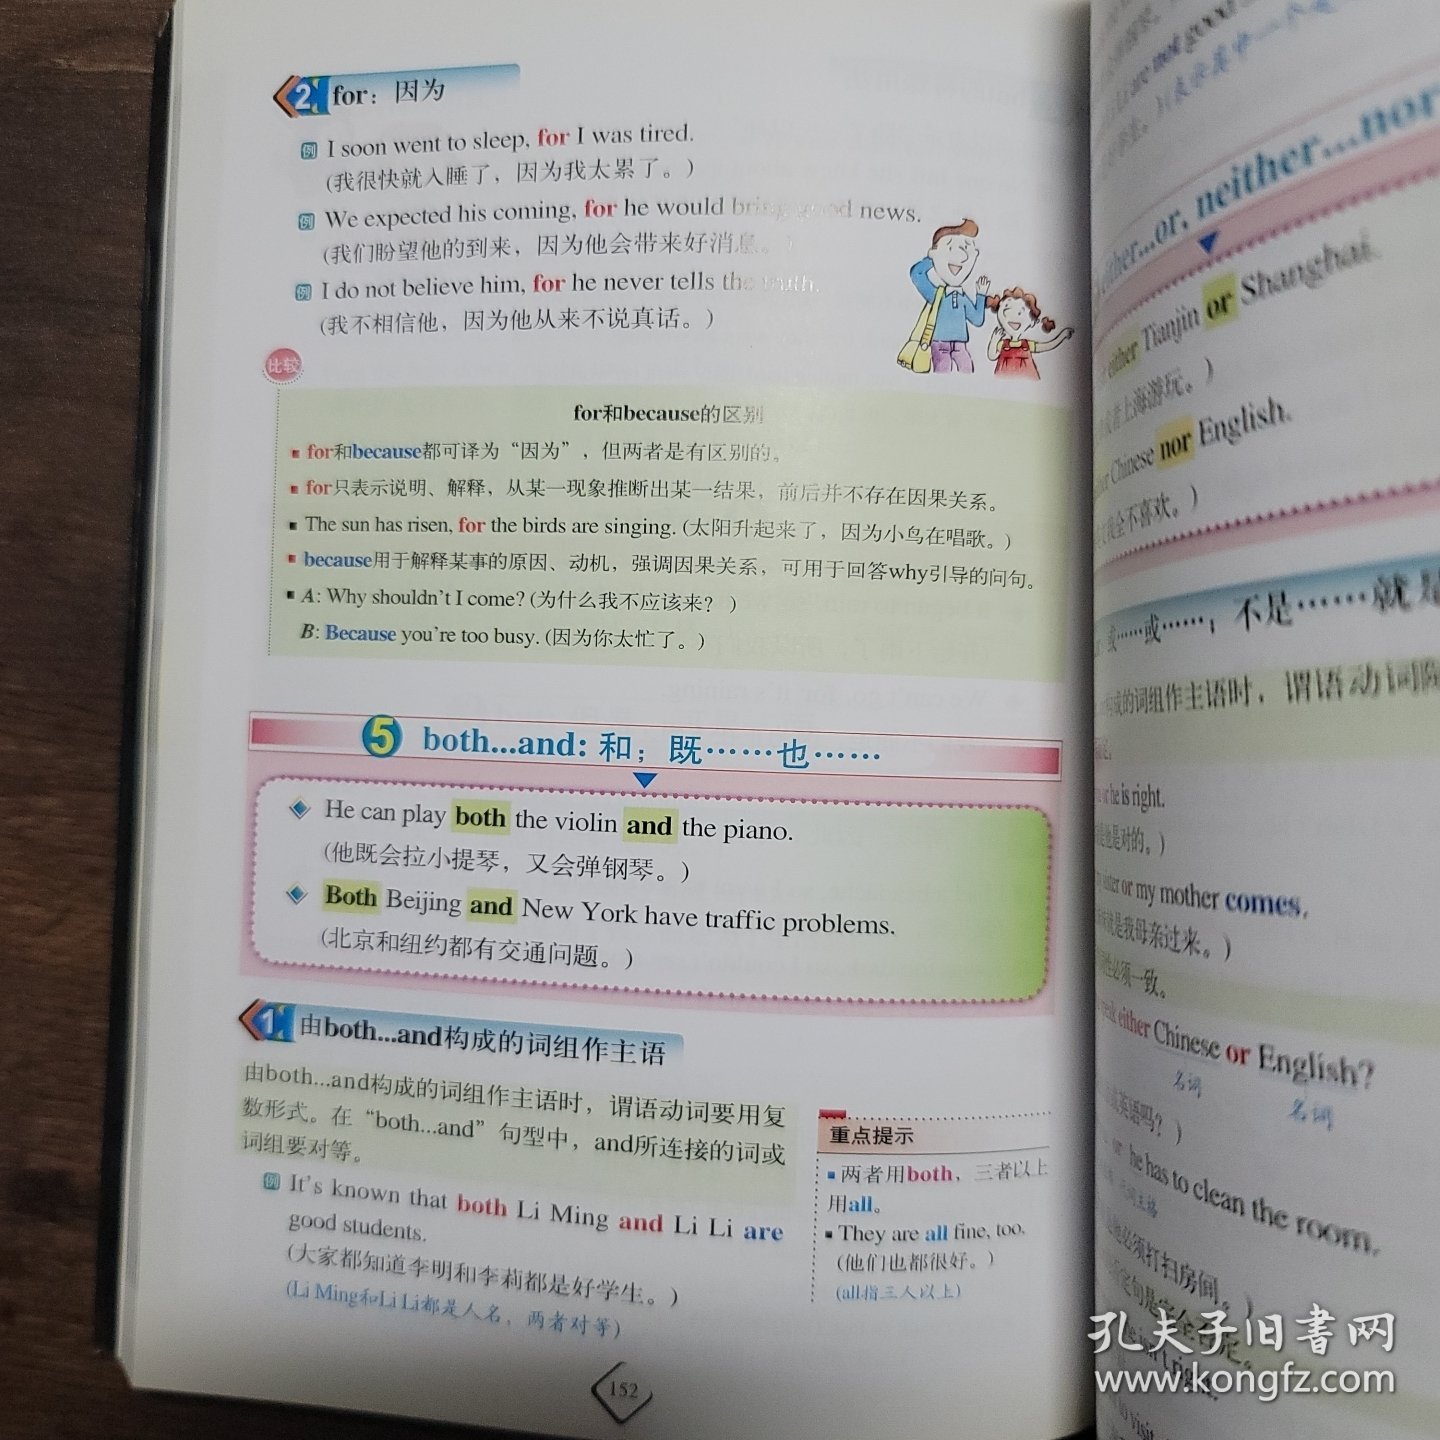 2 for：因为
例 I soon went to sleep, for I was tired.
(我很快就入睡了，因为我太累了。)
例 We expected his coming, for he would bring good news.
(我们盼望他的到来，因为他会带来好消息。)
例 I do not believe him, for he never tells the truth.
(我不相信他，因为他从来不说真话。)
比较
for和because的区别
for和because都可译为“因为”，但两者是有区别的。
for只表示说明、解释，从某一现象推断出某一结果，前后并不存在因果关系。
The sun has risen, for the birds are singing. (太阳升起来了，因为小鸟在唱歌。)
because用于解释某事的原因、动机，强调因果关系，可用于回答why引导的问句。
A: Why shouldn't I come? (为什么我不应该来？)
B: Because you're too busy. (因为你太忙了。)
5 both...and: 和；既……也……
He can play both the violin and the piano.
(他既会拉小提琴，又会弹钢琴。)
Both Beijing and New York have traffic problems.
(北京和纽约都有交通问题。)
1 由both...and构成的词组作主语
由both...and构成的词组作主语时，谓语动词要用复
数形式。在“both...and”句型中，and所连接的词或
词组要对等。
例 It's known that both Li Ming and Li Li are
good students.
(大家都知道李明和李莉都是好学生。)
(Li Ming和Li Li都是人名，两者对等)
重点提示
两者用both，三者以上
用all。
They are all fine, too.
(他们也都很好。)
(all指三人以上)
152
not good
either...or, neither...nor
either Tianjin or Shanghai.
者上海游玩。)
Chinese nor English.
全不喜欢。)
或……或……；不是……就是
构成的词组作主语时，谓语动词
or he is right.
是他是对的。)
or my mother comes.
就是我母亲过来。)
性必须一致。
either Chinese or English?
名词 名词
英语吗？)
or he has to clean the room.
必须打扫房间。)
孔夫子旧书网
www.kongfz.com